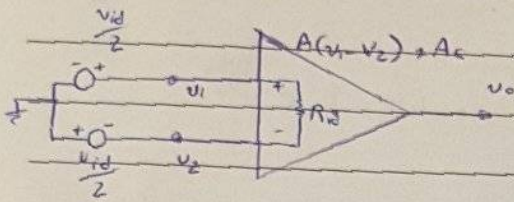 v_id/2
A(v_1 - v_2) + A_c
- +
v_1
+
v_o
R_id
+ -
v_2
-
v_id/2